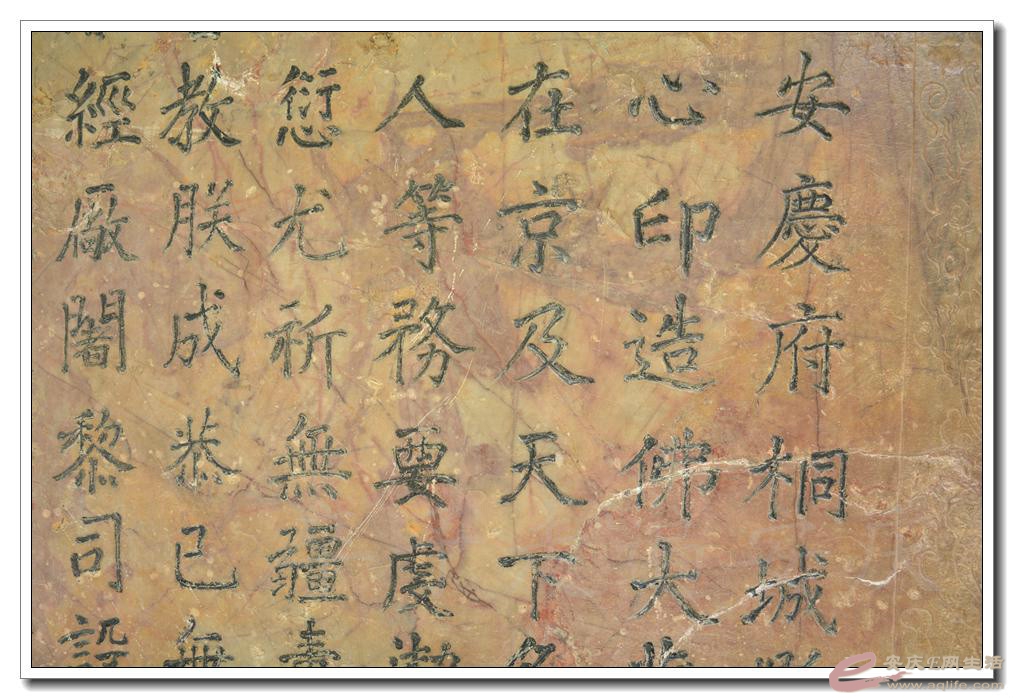 安慶府桐城
心印造佛大
在京及天下名
人等務要虔
愆尤祈無疆壽
教朕成恭已無
經厰闍黎司設
安庆E网生活
www.aqlife.com